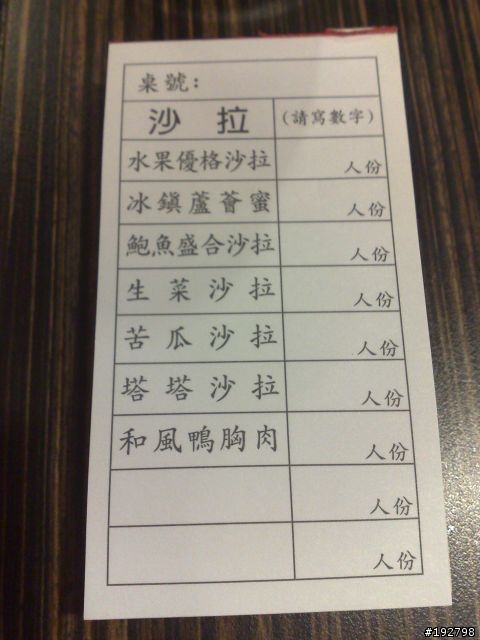 桌號:
沙拉 (請寫數字)
水果優格沙拉 人份
冰鎮蘆薈蜜 人份
鮑魚盛合沙拉 人份
生菜沙拉 人份
苦瓜沙拉 人份
塔塔沙拉 人份
和風鴨胸肉 人份
人份
人份
#192798